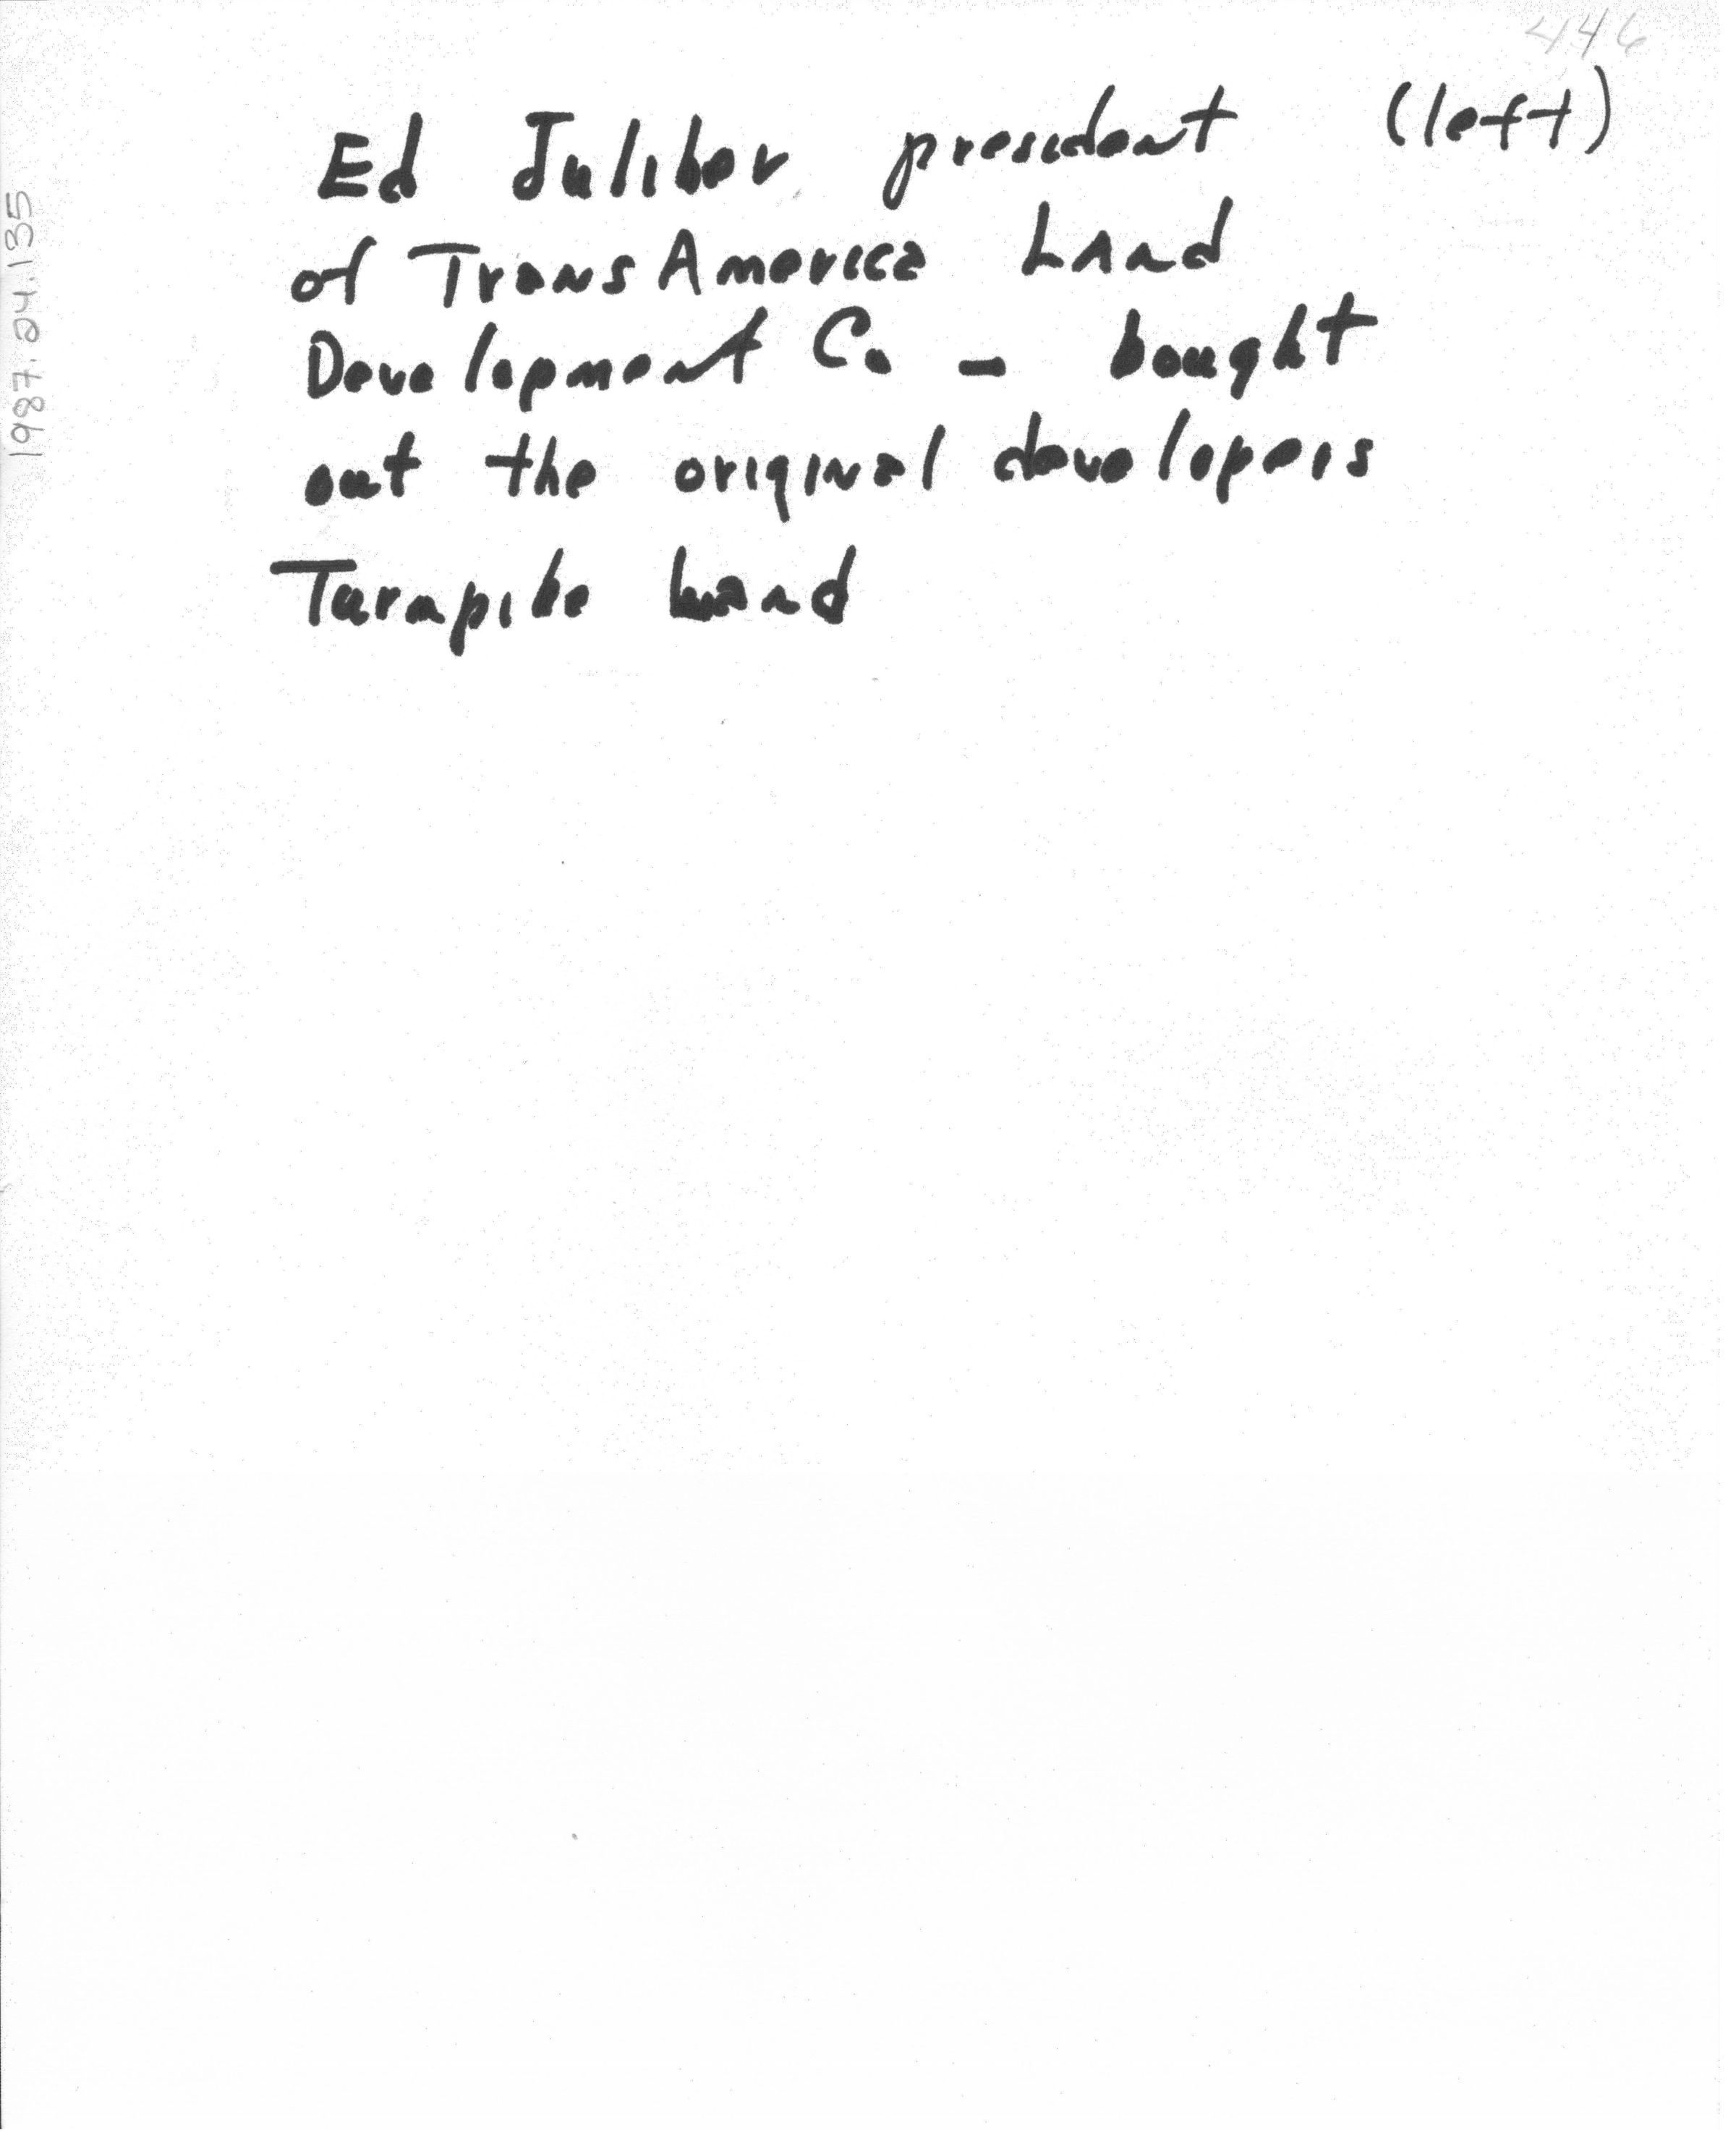 446
Ed Juliber president (left)
of TransAmerica Land
Development Co - bought
out the original developers
Turnpike Land
1987.24.135